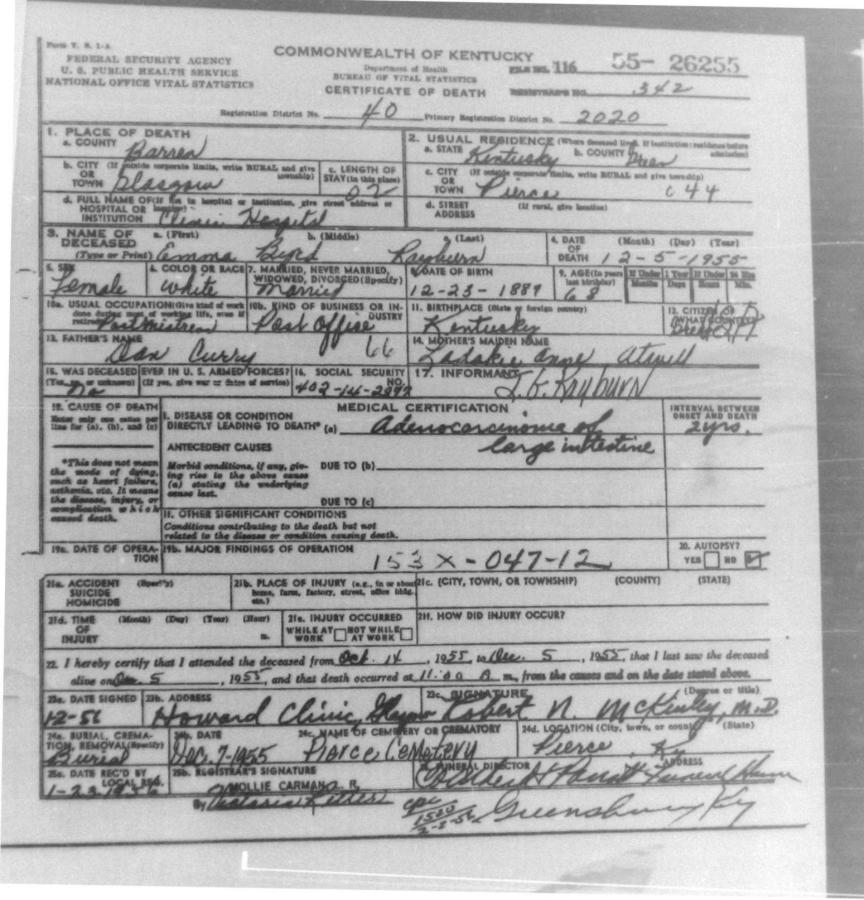 Form V. S. 1-A
FEDERAL SECURITY AGENCY
U. S. PUBLIC HEALTH SERVICE
NATIONAL OFFICE VITAL STATISTICS
COMMONWEALTH OF KENTUCKY
Department of Health
BUREAU OF VITAL STATISTICS
CERTIFICATE OF DEATH
FILE NO. 116 55- 26255
REGISTRAR'S NO. 342
Registration District No. 40 Primary Registration District No. 2020
1. PLACE OF DEATH
a. COUNTY Barren
b. CITY (If outside corporate limits, write RURAL and give township) OR TOWN Glasgow
c. LENGTH OF STAY (in this place)
d. FULL NAME OF (If not in hospital or institution, give street address or location) HOSPITAL OR INSTITUTION Clinic Hospital
2. USUAL RESIDENCE (Where deceased lived. If institution: residence before admission)
a. STATE Kentucky b. COUNTY Green
c. CITY (If outside corporate limits, write RURAL and give township) OR TOWN Pierce 044
d. STREET ADDRESS (If rural, give location)
3. NAME OF DECEASED (Type or Print) a. (First) Emma b. (Middle) Byrd c. (Last) Rayburn
4. DATE OF DEATH (Month) (Day) (Year) 12-5-1955
5. SEX Female
6. COLOR OR RACE White
7. MARRIED, NEVER MARRIED, WIDOWED, DIVORCED (Specify) Married
8. DATE OF BIRTH 12-23-1887
9. AGE (In years last birthday) 68 If Under 1 Year Months Days If Under 24 Hrs Hours Min.
10a. USUAL OCCUPATION (Give kind of work done during most of working life, even if retired) Postmistress
10b. KIND OF BUSINESS OR INDUSTRY Post Office 66
11. BIRTHPLACE (State or foreign country) Kentucky
12. CITIZEN OF WHAT COUNTRY?
13. FATHER'S NAME Dan Curry
14. MOTHER'S MAIDEN NAME Anne Atwell
15. WAS DECEASED EVER IN U. S. ARMED FORCES? (Yes, no, or unknown) (If yes, give war or dates of service) No
16. SOCIAL SECURITY NO. 402-14-2997
17. INFORMANT Rayburn
18. CAUSE OF DEATH
Enter only one cause per line for (a), (b), and (c)
*This does not mean the mode of dying, such as heart failure, asthenia, etc. It means the disease, injury, or complication which caused death.
MEDICAL CERTIFICATION
INTERVAL BETWEEN ONSET AND DEATH
I. DISEASE OR CONDITION DIRECTLY LEADING TO DEATH* (a) Adenocarcinoma of large intestine 2 yrs.
ANTECEDENT CAUSES
Morbid conditions, if any, giving rise to the above cause (a) stating the underlying cause last.
DUE TO (b)
DUE TO (c)
II. OTHER SIGNIFICANT CONDITIONS
Conditions contributing to the death but not related to the disease or condition causing death.
19a. DATE OF OPERATION
19b. MAJOR FINDINGS OF OPERATION
153 X - 047-12
20. AUTOPSY? YES NO
21a. ACCIDENT SUICIDE HOMICIDE (Specify)
21b. PLACE OF INJURY (e.g., in or about home, farm, factory, street, office bldg., etc.)
21c. (CITY, TOWN, OR TOWNSHIP) (COUNTY) (STATE)
21d. TIME OF INJURY (Month) (Day) (Year) (Hour) m.
21e. INJURY OCCURRED WHILE AT WORK NOT WHILE AT WORK
21f. HOW DID INJURY OCCUR?
22. I hereby certify that I attended the deceased from Oct. 14, 1955, to Dec. 5, 1955, that I last saw the deceased
alive on Dec. 5, 1955, and that death occurred at 11:00 A m., from the causes and on the date stated above.
23a. DATE SIGNED 12-56
23b. ADDRESS Howard Clinic, Glasgow
23c. SIGNATURE (Degree or title) Robert N. McKinley, M.D.
24a. BURIAL, CREMATION, REMOVAL (Specify) Burial
24b. DATE Dec. 7-1955
24c. NAME OF CEMETERY OR CREMATORY Pierce Cemetery
24d. LOCATION (City, town, or county) (State) Pierce, Ky
25a. DATE REC'D BY LOCAL REG. 1-23-1956
25b. REGISTRAR'S SIGNATURE MOLLIE CARMAN, R.
By
FUNERAL DIRECTOR ADDRESS
Funeral Home
Greensburg Ky
cpc
1500
2-2-56